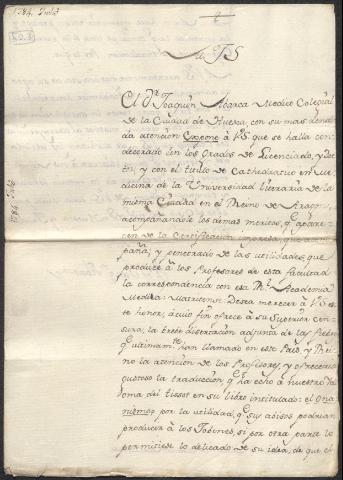 1784. Julio
M. I. S.
El Dr. Joaquin Abarca Medico Colegial
de la Ciudad de Huesca, con su mas denda
da atencion Expone à V.S. que se halla con
decorado en los Grados de Licenciado, y Doc
tor, y con el titulo de Cathedratico en Me
dicina de la Universidad literaria de la
misma Ciudad en el Reino de Aragon,
acompañandole los demas meritos, que apare
cen de la Certificacion impresa, que acom
paña; y penetrado de las utilidades, que
produce à los Profesores de esta facultad
la correspondencia con esa Rl. Academia
Medica Matritense: Desea merecer à V.S. es
te honor; à cuio fin ofrece à su Superior cen
sura, la breve disertacion adjunta de las
que ultimamte. han llamado en este Pais, y Rei
no la atencion de los Profesores, y ofreceria
gustoso la traduccion, que ha echo à nuestro Ydi
oma del tissot en su libro institulado: el Ona
nismo; por la utilidad, que sus abisos podrian
producir à los Jobenes, si por otra parte lo
permitiese lo delicado de su idea, de que el